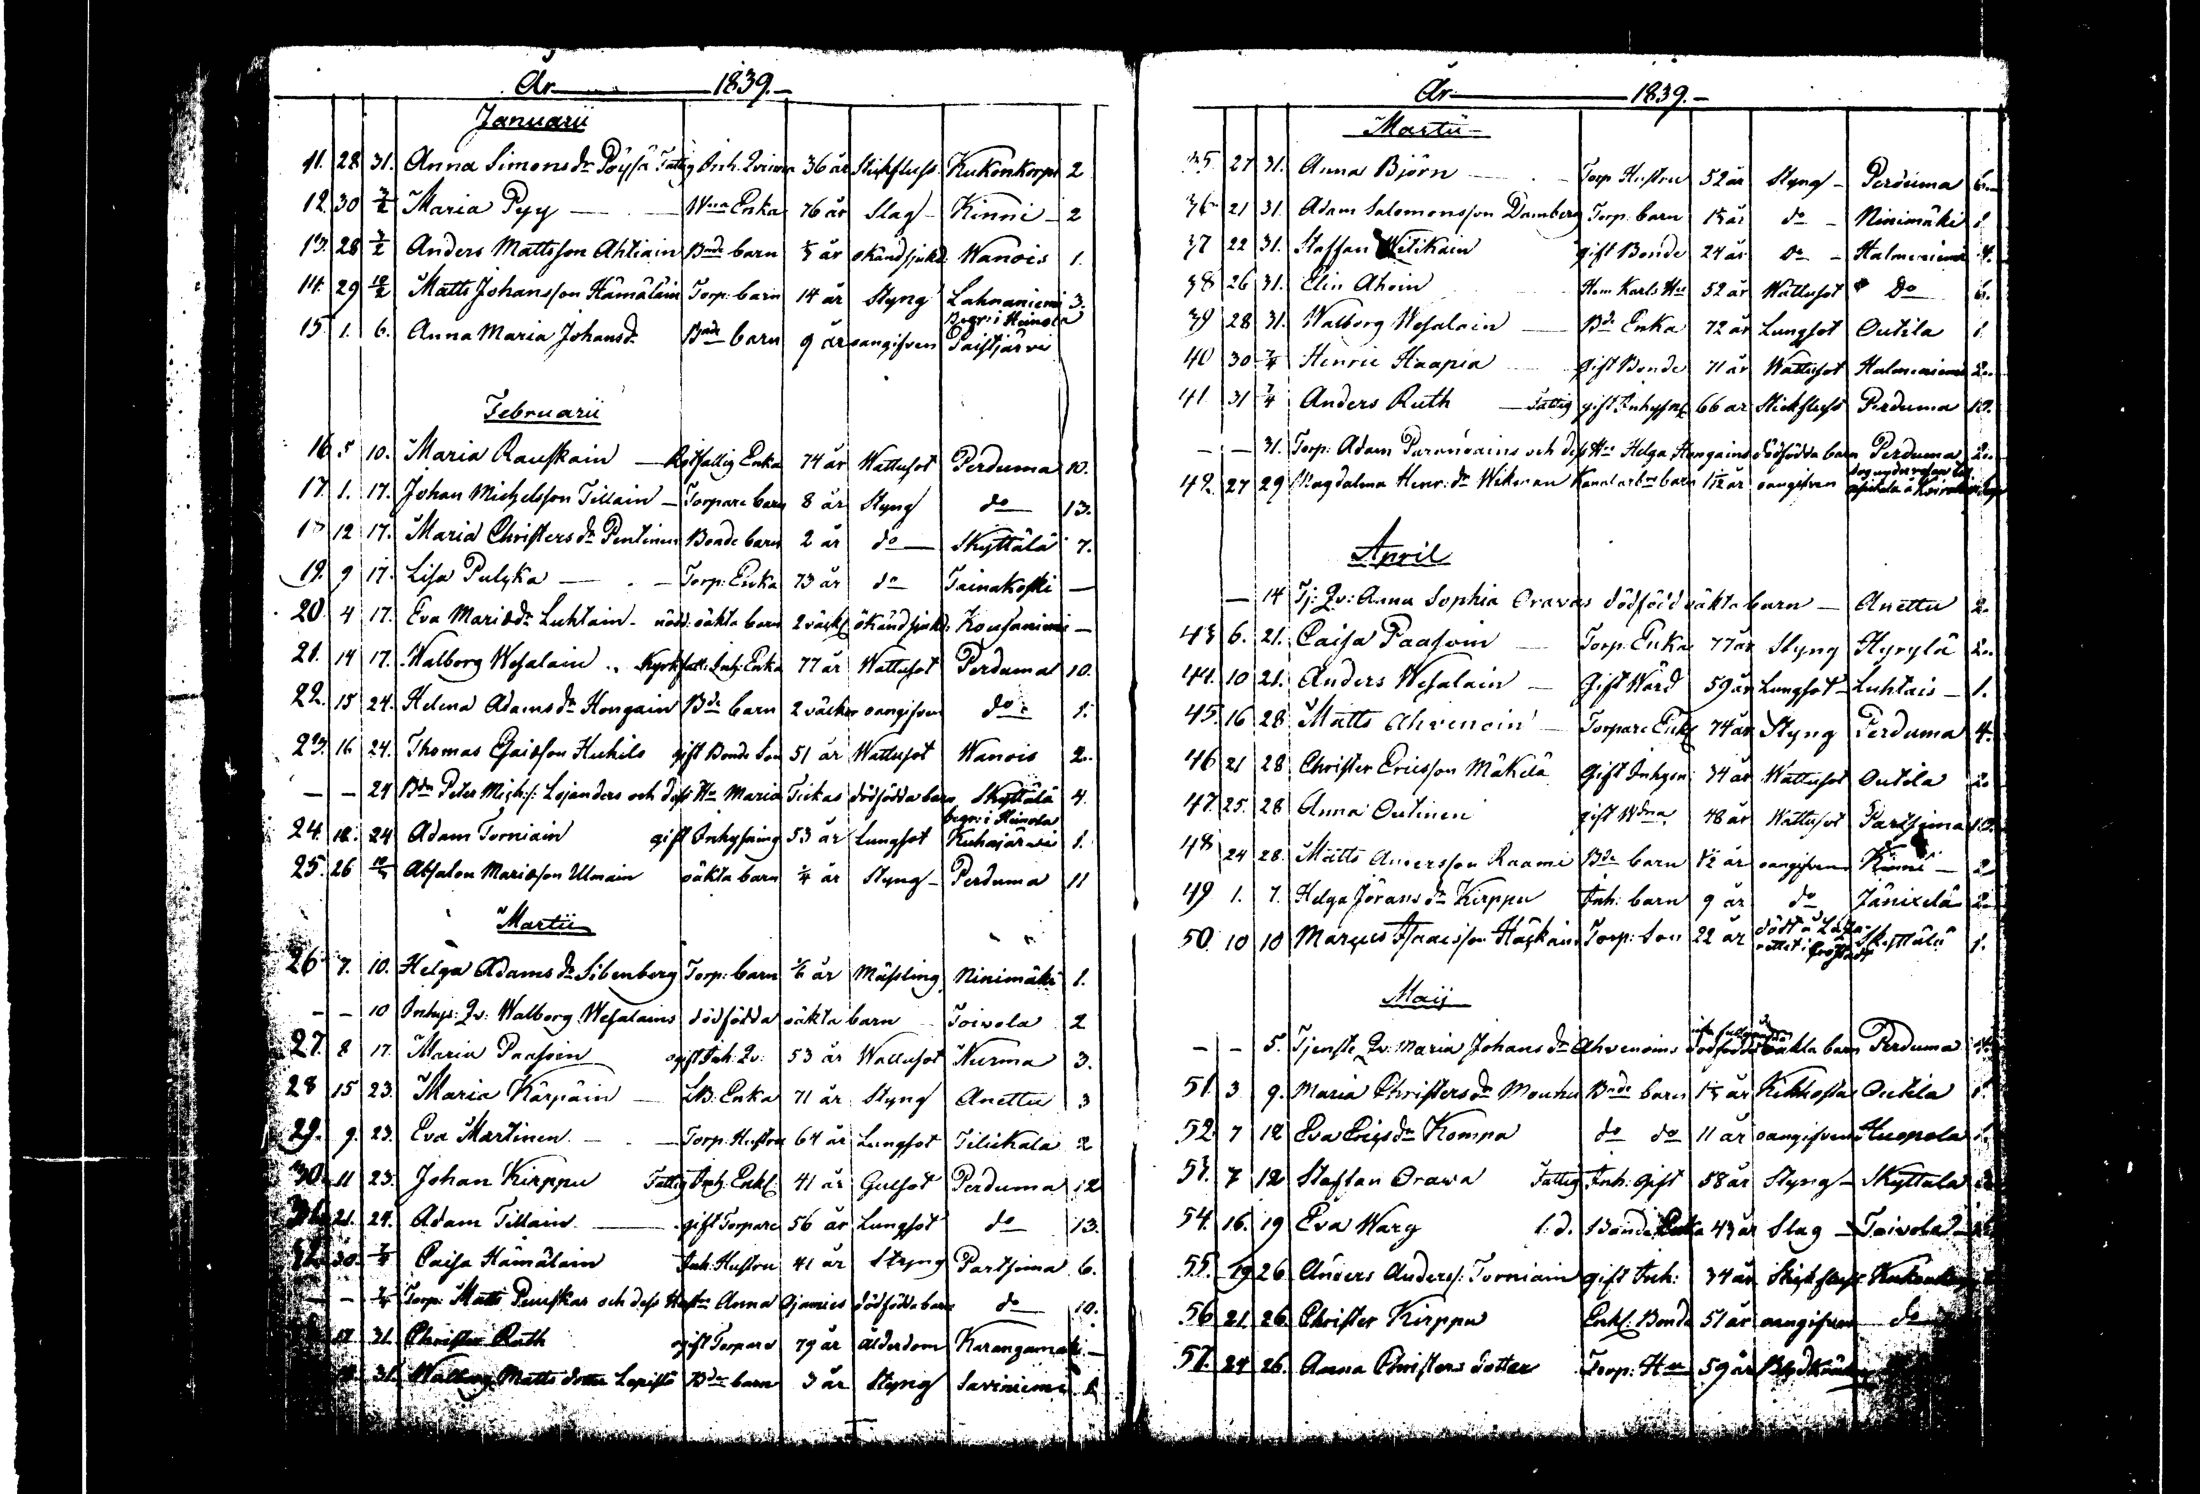 År 1839.
Januarii
11. 28 31. Anna Simons dr Pöysä Fattig Inh. Qvinna 36 år Stickfluss. Kukonkorpi 2
12. 30 3/2 Maria Pyy Enka 76 år Slag Kinni 2
13. 28 3/2 Anders Mattsson Ahtiain Bnde barn år okänd sjukd. Wanois 1.
14. 29 10/2 Matts Johansson Hämäläin Torp: barn 14 år Styng Lahnaniemi 3.
Begr: i Heinola
15 1. 6. Anna Maria Johansd. Bnde barn 9 år oangifven Paistjärvi
Februarii
16 5 10. Maria Rauskain Enka 74 år Wattusot Perduma 10.
17. 1. 17. Johan Michelsson Tillain Torpare barn 8 år Styng do 13.
12 17. Maria Christers dr Pentinen Bonde barn 2 år do Skyttälä 7.
19. 9 17. Lisa Pulyka Torp: Enka 73 år do Tainakoski
20. 4 17. Eva Mariæ dr Luhtain oäkta barn okänd sjukd.
21. 14 17. Walborg Wesalain Inh: Enka 77 år Wattusot Perduma 10.
22. 15 24. Helena Adams dr Hongain Bde barn 2 veckor oangifven do 1.
23. 16 24. Thomas Huhilo gift Bonde Son 51 år Wattusot Wanois 2.
— — 24 Bdn Peter Mich:s: Lojanders och dess Hu Maria Tickas dödfödda barn Skyttälä 4.
begr: i Heinola
24. 18. 24 Adam Torniain gift Inhysing 53 år Lungsot Kuhajärwi 1.
25. 26 10/3 Absalon Mariæson Ulmain oäkta barn 1/4 år Styng Perduma 11
Martii
26 7. 10. Helga Adams dr Sibenberg Torp: barn år Mässling Ninimäki 1.
— — 10 Inhys: Qv: Walborg Wesalains dödfödda oäkta barn Toivola 2
27. 8 17. Maria Paasoin Inh: Qv: 53 år Wattusot Nurma 3.
28 15 23. Maria Kärpäin Enka 71 år Styng Anettu 3
29. 9. 23. Eva Martinen Torp: Hustru 64 år Lungsot Tilikala 2
30. 11 23. Johan Kirppu Fattig Inh: Enkl. 41 år Gulsot Perduma 12
21. 24. Adam Tillain gift Torpare 56 år Lungsot do 13.
30. 7/4 Caisa Hämäläin Inh: Hustru 41 år Styng Partsima 6.
— — 7/4 Torp: Matts och dess Anna dödfödda barn do 10.
17 31. Christer Ruth gift Torpare 79 år ålderdom Karangamäki
31. Walborg Matts dotter Lapisto Bde barn 3 år Styng Saviniemi
År 1839.
Martii
35 27 31. Anna Björn Torp: Hustru 52 år Styng Perduma 6.
36 21 31. Adam Salomonsson Damberg Torp: barn år do Ninimäki 1.
37 22 31. Staffan Witikain gift Bonde 24 år do Halmeniemi 4.
38 26 31. Elin Ahoin Hem Karls Hu 52 år Wattusot Do 6.
39 28 31. Walborg Wesalain Bde Enka 72 år Lungsot Outila 1.
40 30 7/4 Henric Haapia gift Bonde 71 år Wattusot Halmeniemi 2.
41. 31 7/4 Anders Ruth Fattig gift Inhyses 66 år Stickfluss Perduma 10.
— — 31. Torp: Adam och dess Hu Helga Hongains dödfödda barn Perduma 2.
42. 27 29 Magdalena Henr: dr Wikman barn år oangifven
April
— 14 Tj: Qv: Anna Sophia Oravas dödfödd oäkta barn Anettu 2.
43 6. 21. Caisa Paasoin Torp: Enka 77 år Styng Hyrylä 2.
44. 10 21. Anders Wesalain Gift Wärd 59 år Lungsot Luhtais 1.
45. 16 28 Matts Ahvenoin Torpare Enkl. 74 år Styng Perduma 4.
46 21 28 Christer Ericsson Mäkelä Gift Inhysn: 34 år Wattusot Outila 2.
47. 25. 28 Anna Outinen gift Wdna 48 år Wattusot Partsima 10.
48 24 28. Matts Andersson Raami Bde barn år oangifven Kinni 2
49 1. 7. Helga Jörans dr Kirppu Inh: barn 9 år do Jänixelä 2.
50. 10 10 Marcus Isaacsson Häkkäin Torp: Son 22 år död å Laza-
rettet i Skyttälä 1.
Maij
— — 5. Tjenste Qv: Maria Johans dr Ahvenoins dödfödda oäkta barn Perduma
51. 3 9. Maria Christers dr Mouhu Bnde barn år Kikhosta Outila 1.
52. 7 12 Eva Erics dr Kompa do do 11 år oangifven Huopola
53. 7 12 Staffan Orawa Fattig Inh: gift 58 år Styng Skyttälä
54. 16. 19 Eva Wary Bonde Enka 43 år Slag Toivola
55. 19 26 Anders Anders: Torniain gift Inh: 34 år Stickfluss
56 21 26 Christer Kirppu Enkl: Bonde 51 år oangifven do
57. 24 26. Anna Christers dotter Torp: Hu 59 år